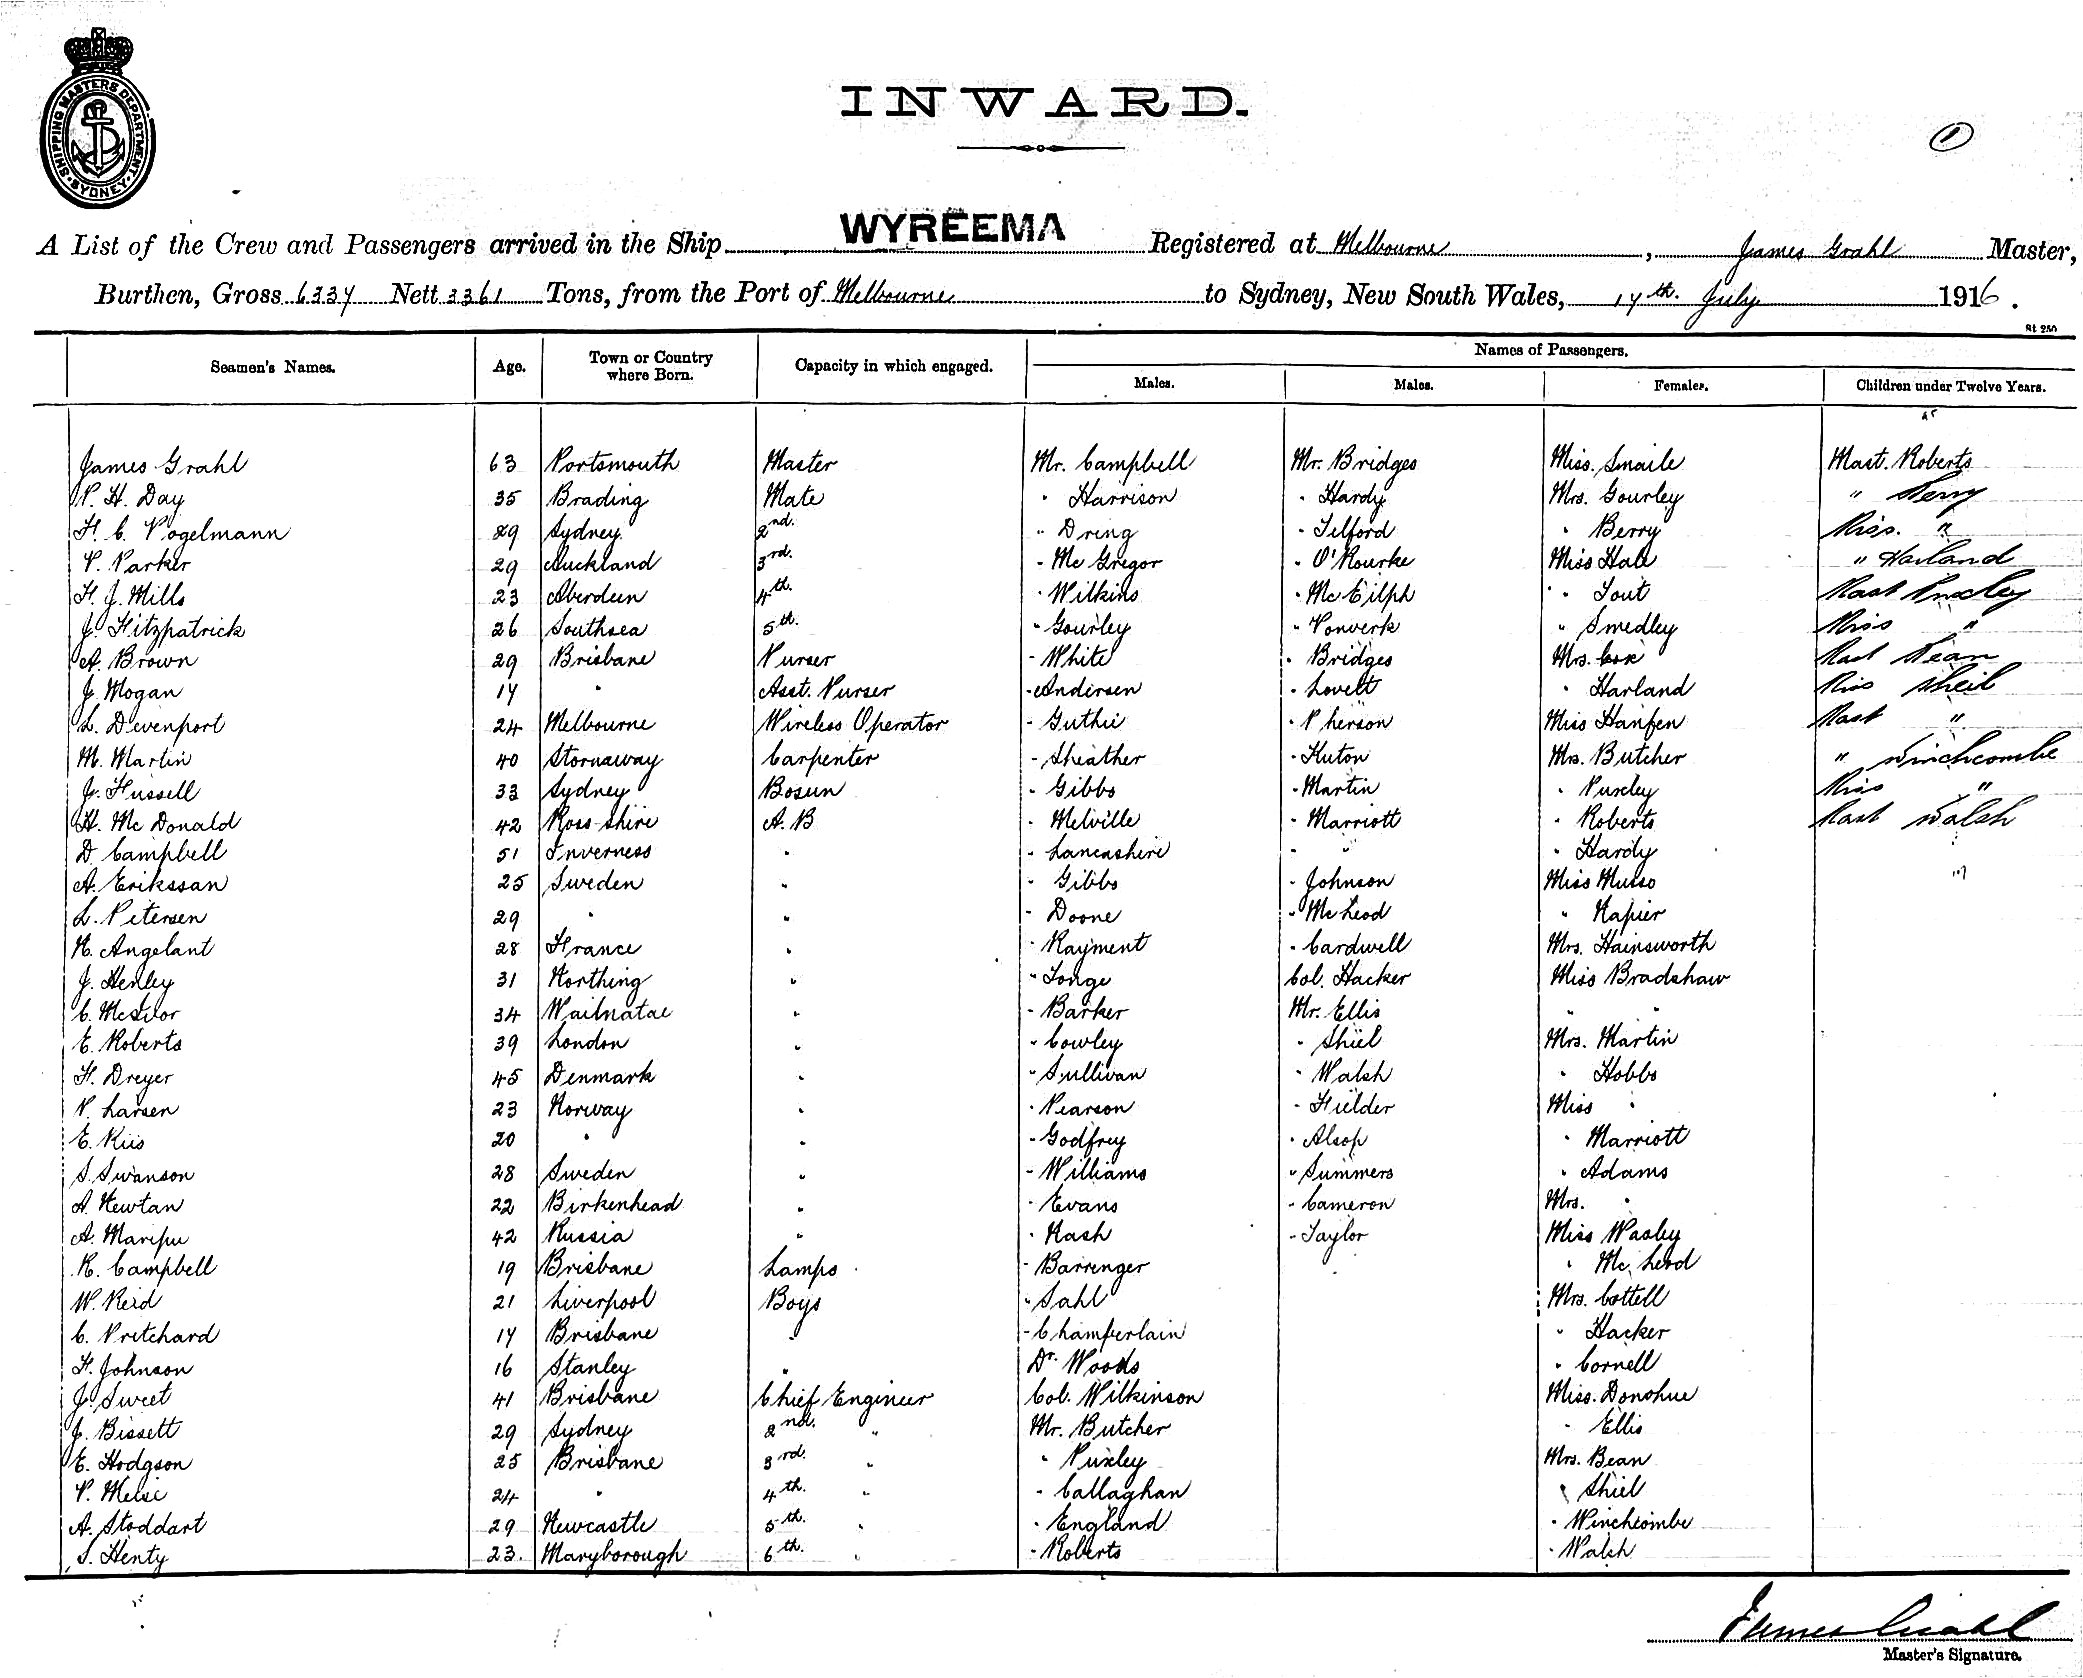 SHIPPING MASTERS DEPARTMENT. SYDNEY
INWARD.
1
A List of the Crew and Passengers arrived in the Ship WYREEMA Registered at Melbourne, James Grahl Master,
Burthen, Gross 6337 Nett 3361 Tons, from the Port of Melbourne to Sydney, New South Wales, 17th. July 1916.
St 250
Names of Passengers.
Seamen's Names. Age. Town or Country where Born. Capacity in which engaged. Males. Males. Females. Children under Twelve Years.
James Grahl 63 Portsmouth Master Mr. Campbell Mr. Bridges Miss. Smaile Mast. Roberts
P. H. Day 35 Brading Mate " Harrison " Hardy Mrs. Gourley " Berry
H. C. Vogelmann 29 Sydney 2nd. " Dring " Telford " Berry Miss. "
P. Parker 29 Auckland 3rd. " Mc Gregor " O'Rourke Miss Hale " Harland
H. J. Mills 23 Aberdeen 4th. " Wilkins " Mc Eilph " Tout Mast Puxley
J. Fitzpatrick 26 Southsea 5th. " Gourley " Vonwerk " Smedley Miss "
A. Brown 29 Brisbane Purser " White " Bridges Mrs. Cox Mast Bean
J. Mogan 17 " Asst. Purser " Andersen " Lovett " Harland Miss Sheil
L. Devenport 24 Melbourne Wireless Operator " Guthie " Pherson Miss Hanfen Mast "
M. Martin 40 Stornaway Carpenter " Sheather " Huton Mrs. Butcher " Winchcombe
J. Hussell 33 Sydney Bosun " Gibbs " Martin " Puxley Miss "
H. Mc Donald 42 Ross-shire A.B " Melville " Marriott " Roberts Mast Walsh
D. Campbell 51 Inverness " " Lancashire " " " Hardy
A. Erikssan 25 Sweden " " Gibbs " Johnson Miss Musso
L. Petersen 29 " " " Doone " Mc Leod " Napier
N. Angelant 28 France " " Rayment " Cardwell Mrs. Hainsworth
J. Henley 31 Northing " " Tonge Col. Hacker Miss Bradshaw
C. McIvor 34 Wailnatae " " Barker Mr. Ellis " "
E. Roberts 39 London " " Cowley " Shiel Mrs. Martin
H. Dreyer 45 Denmark " " Sullivan " Walsh " Hobbs
P. Larsen 23 Norway " " Pearson " Fielder Miss "
E. Riis 20 " " " Godfrey " Alsop " Marriott
S. Swanson 28 Sweden " " Williams " Summers " Adams
A. Newtan 22 Birkenhead " " Evans " Cameron Mrs. "
A. Maripu 42 Russia " " Nash " Taylor Miss Wasley
R. Campbell 19 Brisbane Lamps " Barrenger " Mc Leod
W. Reid 21 Liverpool Boys " Sahl Mrs. Cottell
C. Pritchard 17 Brisbane " " Chamberlain " Hacker
H. Johnson 16 Stanley " Dr. Woods " Cornell
J. Sweet 41 Brisbane Chief Engineer Col. Wilkinson Miss. Donohue
J. Bissett 29 Sydney 2nd. " Mr. Butcher " Ellis
E. Hodgson 25 Brisbane 3rd. " " Puxley Mrs. Bean
P. 24 " 4th. " " Callaghan " Shiel
A. Stoddart 29 Newcastle 5th. " " England " Winchcombe
S. Henty 23. Maryborough 6th. " " Roberts " Walsh
James Grahl
Master's Signature.